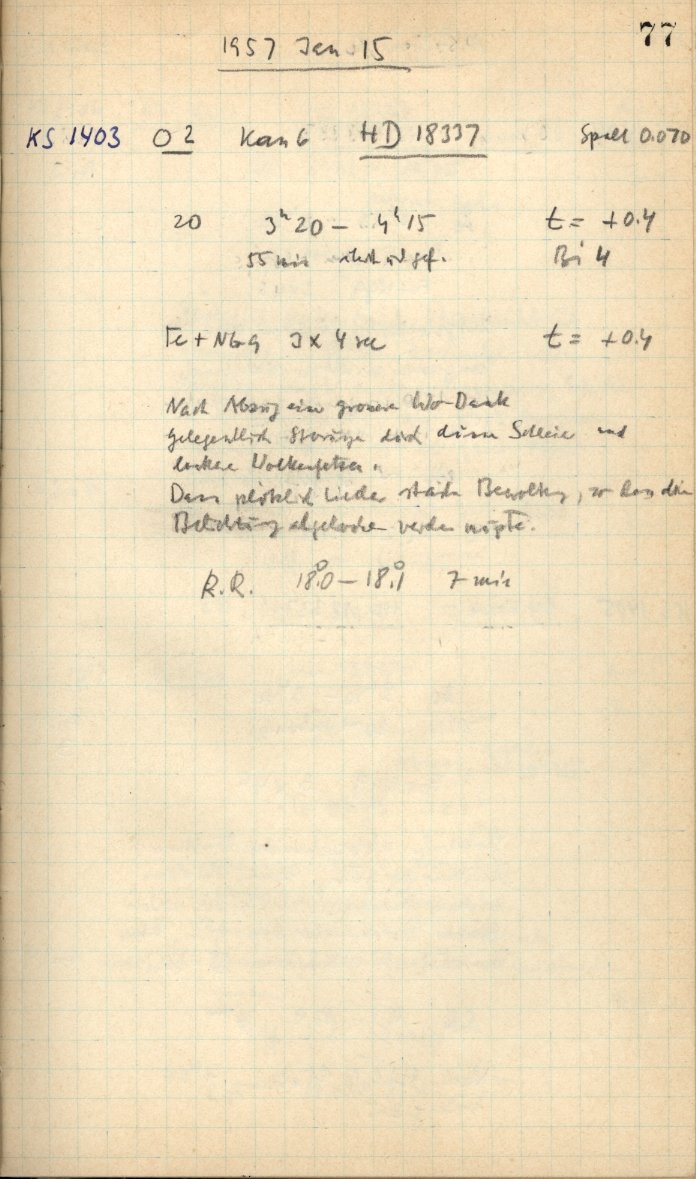 77
1957 Jan 15
KS 1403 O 2 Kan 6 HD 18337 Spalt 0.070
20 3h 20 – 4h 15 t = +0.4
55 min gef. Bi 4
Fe + 3 x 4 sec t = +0.4
Nach Abzug einer Wo-Bank
gelegentlich Störungen durch dünne Schleier und
lockere Wolkenfetzen.
Dann plötzlich wieder starke Bewölkung, so dass die
Belichtung abgebrochen werden mußte.
R.R. 18°.0 – 18°.1 7 min